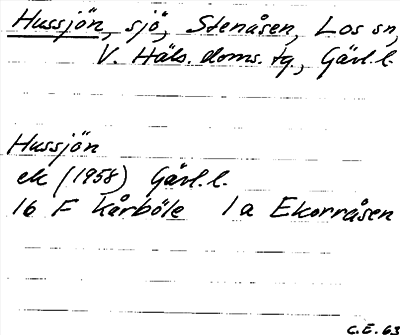 Hussjön, sjö, Stenåsen, Los sn,
V. Häls. doms. tg., Gävl. l.
Hussjön
ek (1958) Gävl. l.
16 F Kårböle 1 a Ekorråsen
C.E. 63